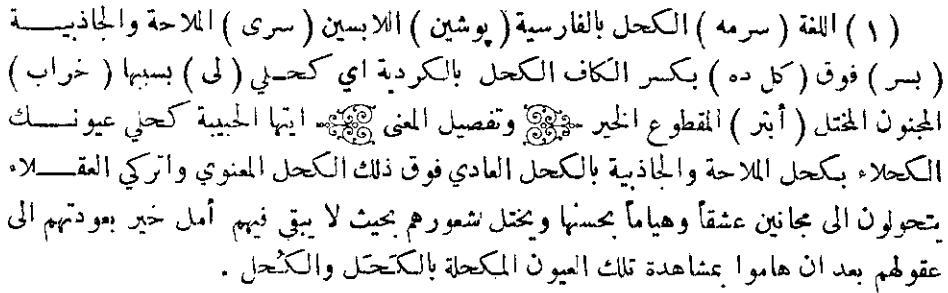 ( ١ ) اللغة ( سرمه ) الكحل بالفارسية ( پوشين ) اللابسين ( سرى ) الملاحة والجاذبيـــة
( بسر ) فوق ( كل ده ) بكسر الكاف الكحل بالكردية اي كحـلي ( لى ) بسببها ( خراب )
المجنون المختل ( أبتر ) المقطوع الخير وتفصيل المعنى ايتها الحبيبة كحلي عيونــك
الكحلاء بكحل الملاحة والجاذبية بالكحل العادي فوق ذلك الكحل المعنوي واتركي العقــلاء
يتحولون الى مجانين عشقاً وهياماً بحسنها ويختل شعورهم بحيث لا يبقى فيهم أمل خير بعودتهم الى
عقولهم بعد ان هاموا بمشاهدة تلك العيون المكحلة بالكَتحَل والكُتحل .